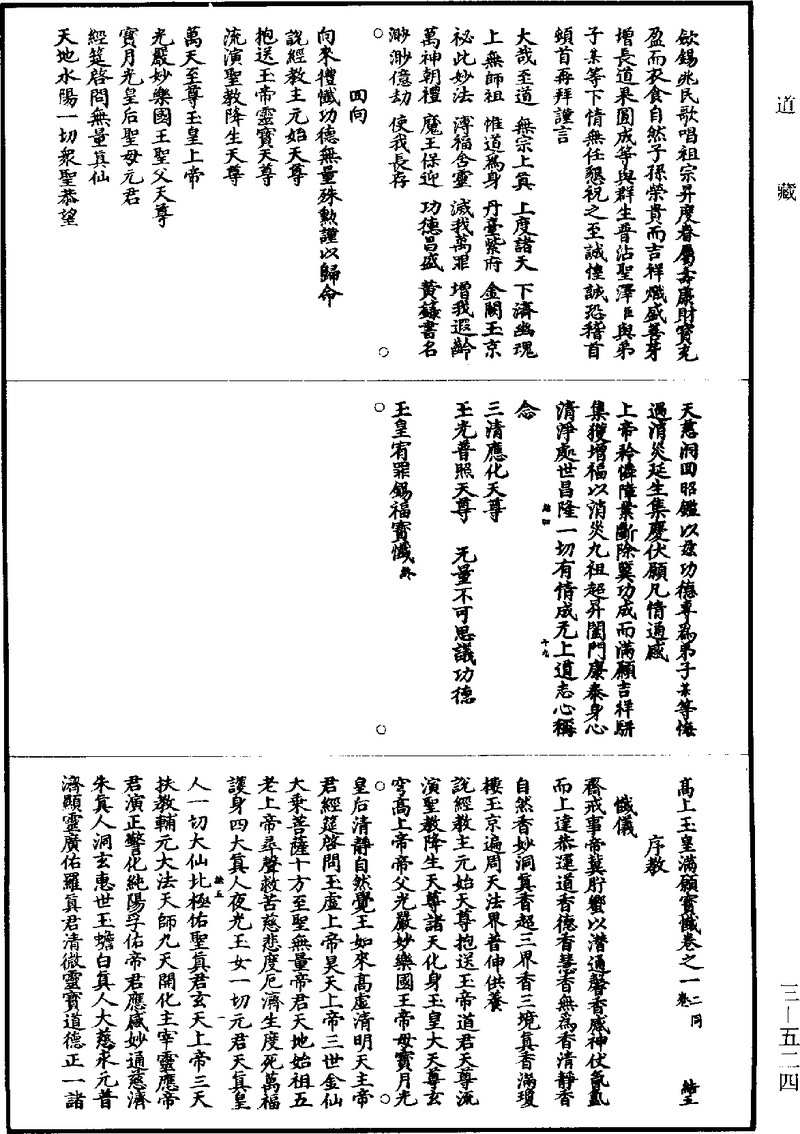 道藏
三一五二四
歛錫兆民歌唱祖宗昇度眷屬壽康財寶充
盈而衣食自然子孫榮貴而吉祥熾盛善芽
增長道果圓成等與群生普沾聖澤臣與弟
子某等下情無任懇祝之至誠惶誠恐稽首
頓首再拜謹言
大哉至道 無宗上真 上度諸天 下濟幽瑰
上無師祖 惟道為身 丹臺紫府 金闕玉京
祕此妙法 溥福含靈 滅我萬罪 增我遐齡
萬神朝禮 魔王保迎 功德昌盛 黃籙書名
渺渺億劫 使我長存
回向
向來禮懺功德無量殊勲謹以歸命
説經教主元始天尊
抱送玉帝靈寶天尊
流演聖教降生天尊
萬天至尊玉皇上帝
光嚴妙樂國王聖父天尊
寶月光皇后聖母元君
經筵啓問無量真仙
天地水陽一切衆聖恭望
天慈洞回昭鑑以玆功德專為弟子某等悔
過消災延生集慶伏願凡情通感
上帝矜憐障業斷除冀功成而滿願吉祥駢
集獲增福以消災九祖超昇闔門康泰身心
清淨處世昌隆一切有情成无上道志心稱
念
三清應化天尊
玉光普照天尊 无量不可思議功德
玉皇宥罪錫福寶懺終
高上玉皇滿願寶懺卷之一 二同卷
序教
懺儀
齋戒事帝冀肸蠁以潛通馨香感神伏氤氳
而上達恭運道香德香慧香無為香清靜香
自然香妙洞真香超三界香三境真香滿瓊
樓玉京遍周天法界普伸供養
説經教主元始天尊抱送玉帝道君天尊流
演聖教降生天尊諸天化身玉皇大天尊玄
穹高上帝帝父光嚴妙樂國王帝母寶月光
皇后清靜自然覺王如來高虛清明天主帝
君經筵啓問玉虛上帝昊天上帝三世金仙
大乘菩薩十方至聖無量帝君天地始祖五
老上帝尋聲救苦慈悲度厄濟生度死萬福
護身四大真人夜光玉女一切元君天真皇
人一切大仙北極佑聖真君玄天上帝三天
扶教輔元大法天師九天開化主宰靈應帝
君演正警化純陽孚佑帝君應感妙通慈濟
朱真人洞玄惠世玉蟾白真人大慈永元普
濟顯靈廣佑羅真君清微靈寶道德正一諸